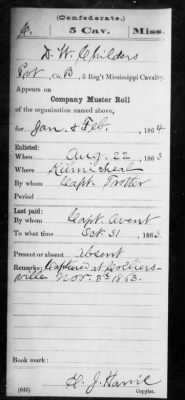 (Confederate.)
C. 5 Cav. Miss.
D. W. Childers
Pvt, Co. B, 5 Reg't Mississippi Cavalry.
Appears on
Company Muster Roll
of the organization named above,
for Jan. & Feb., 1864
Enlisted:
When Aug. 22, 1863
Where Kilmicheal
By whom Capt. Trotter
Period
Last paid:
By whom Capt. Avent
To what time Oct. 31, 1863.
Present or absent Absent
Remarks: Captured at Colliers-
ville Nov. 3d 1863.
Book mark:
(642) Copyist.